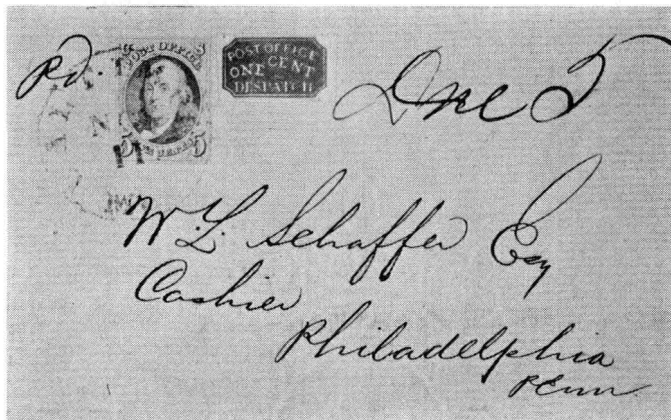 Pd.
POST OFFICE
5 5
POST OFFICE
ONE CENT
DESPATCH
Due 5
W. L. Schaffer Esq
Cashier
Philadelphia
Penn